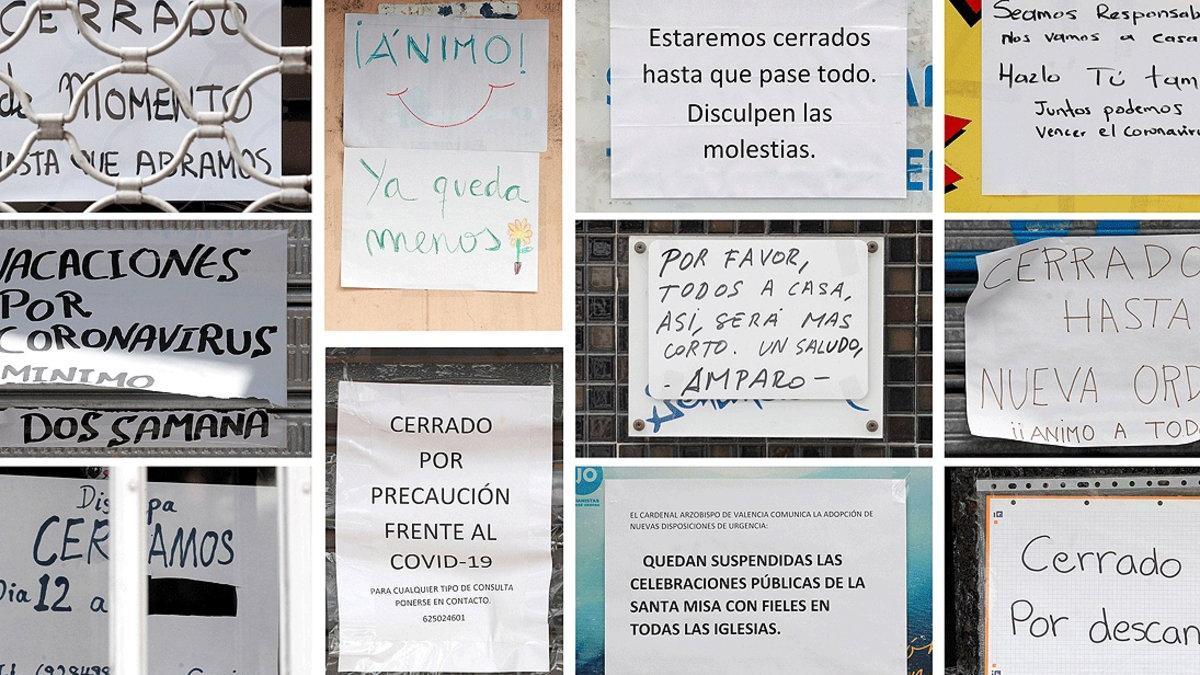 CERRADO
de MOMENTO
HASTA QUE ABRAMOS
VACACIONES
POR
CORONAVIRUS
MINIMO
DOS SAMANA
CERRAMOS
Dia 12 a
¡ÁNIMO!
Ya queda
menos
CERRADO
POR
PRECAUCIÓN
FRENTE AL
COVID-19
PARA CUALQUIER TIPO DE CONSULTA
PONERSE EN CONTACTO.
625024601
Estaremos cerrados
hasta que pase todo.
Disculpen las
molestias.
POR FAVOR,
TODOS A CASA,
ASÍ, SERÁ MAS
CORTO. UN SALUDO,
- AMPARO -
EL CARDENAL ARZOBISPO DE VALENCIA COMUNICA LA ADOPCIÓN DE
NUEVAS DISPOSICIONES DE URGENCIA:
QUEDAN SUSPENDIDAS LAS
CELEBRACIONES PÚBLICAS DE LA
SANTA MISA CON FIELES EN
TODAS LAS IGLESIAS.
Seamos Responsab
Nos vamos a casa
Hazlo Tú tam
Juntos podemos
Vencer el Coronaviru
CERRADO
HASTA
NUEVA ORD
¡¡ANIMO A TODO
Cerrado
Por descan